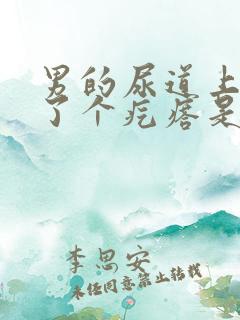 男的尿道上
了个疙瘩是
李思安
未经同意禁止转载